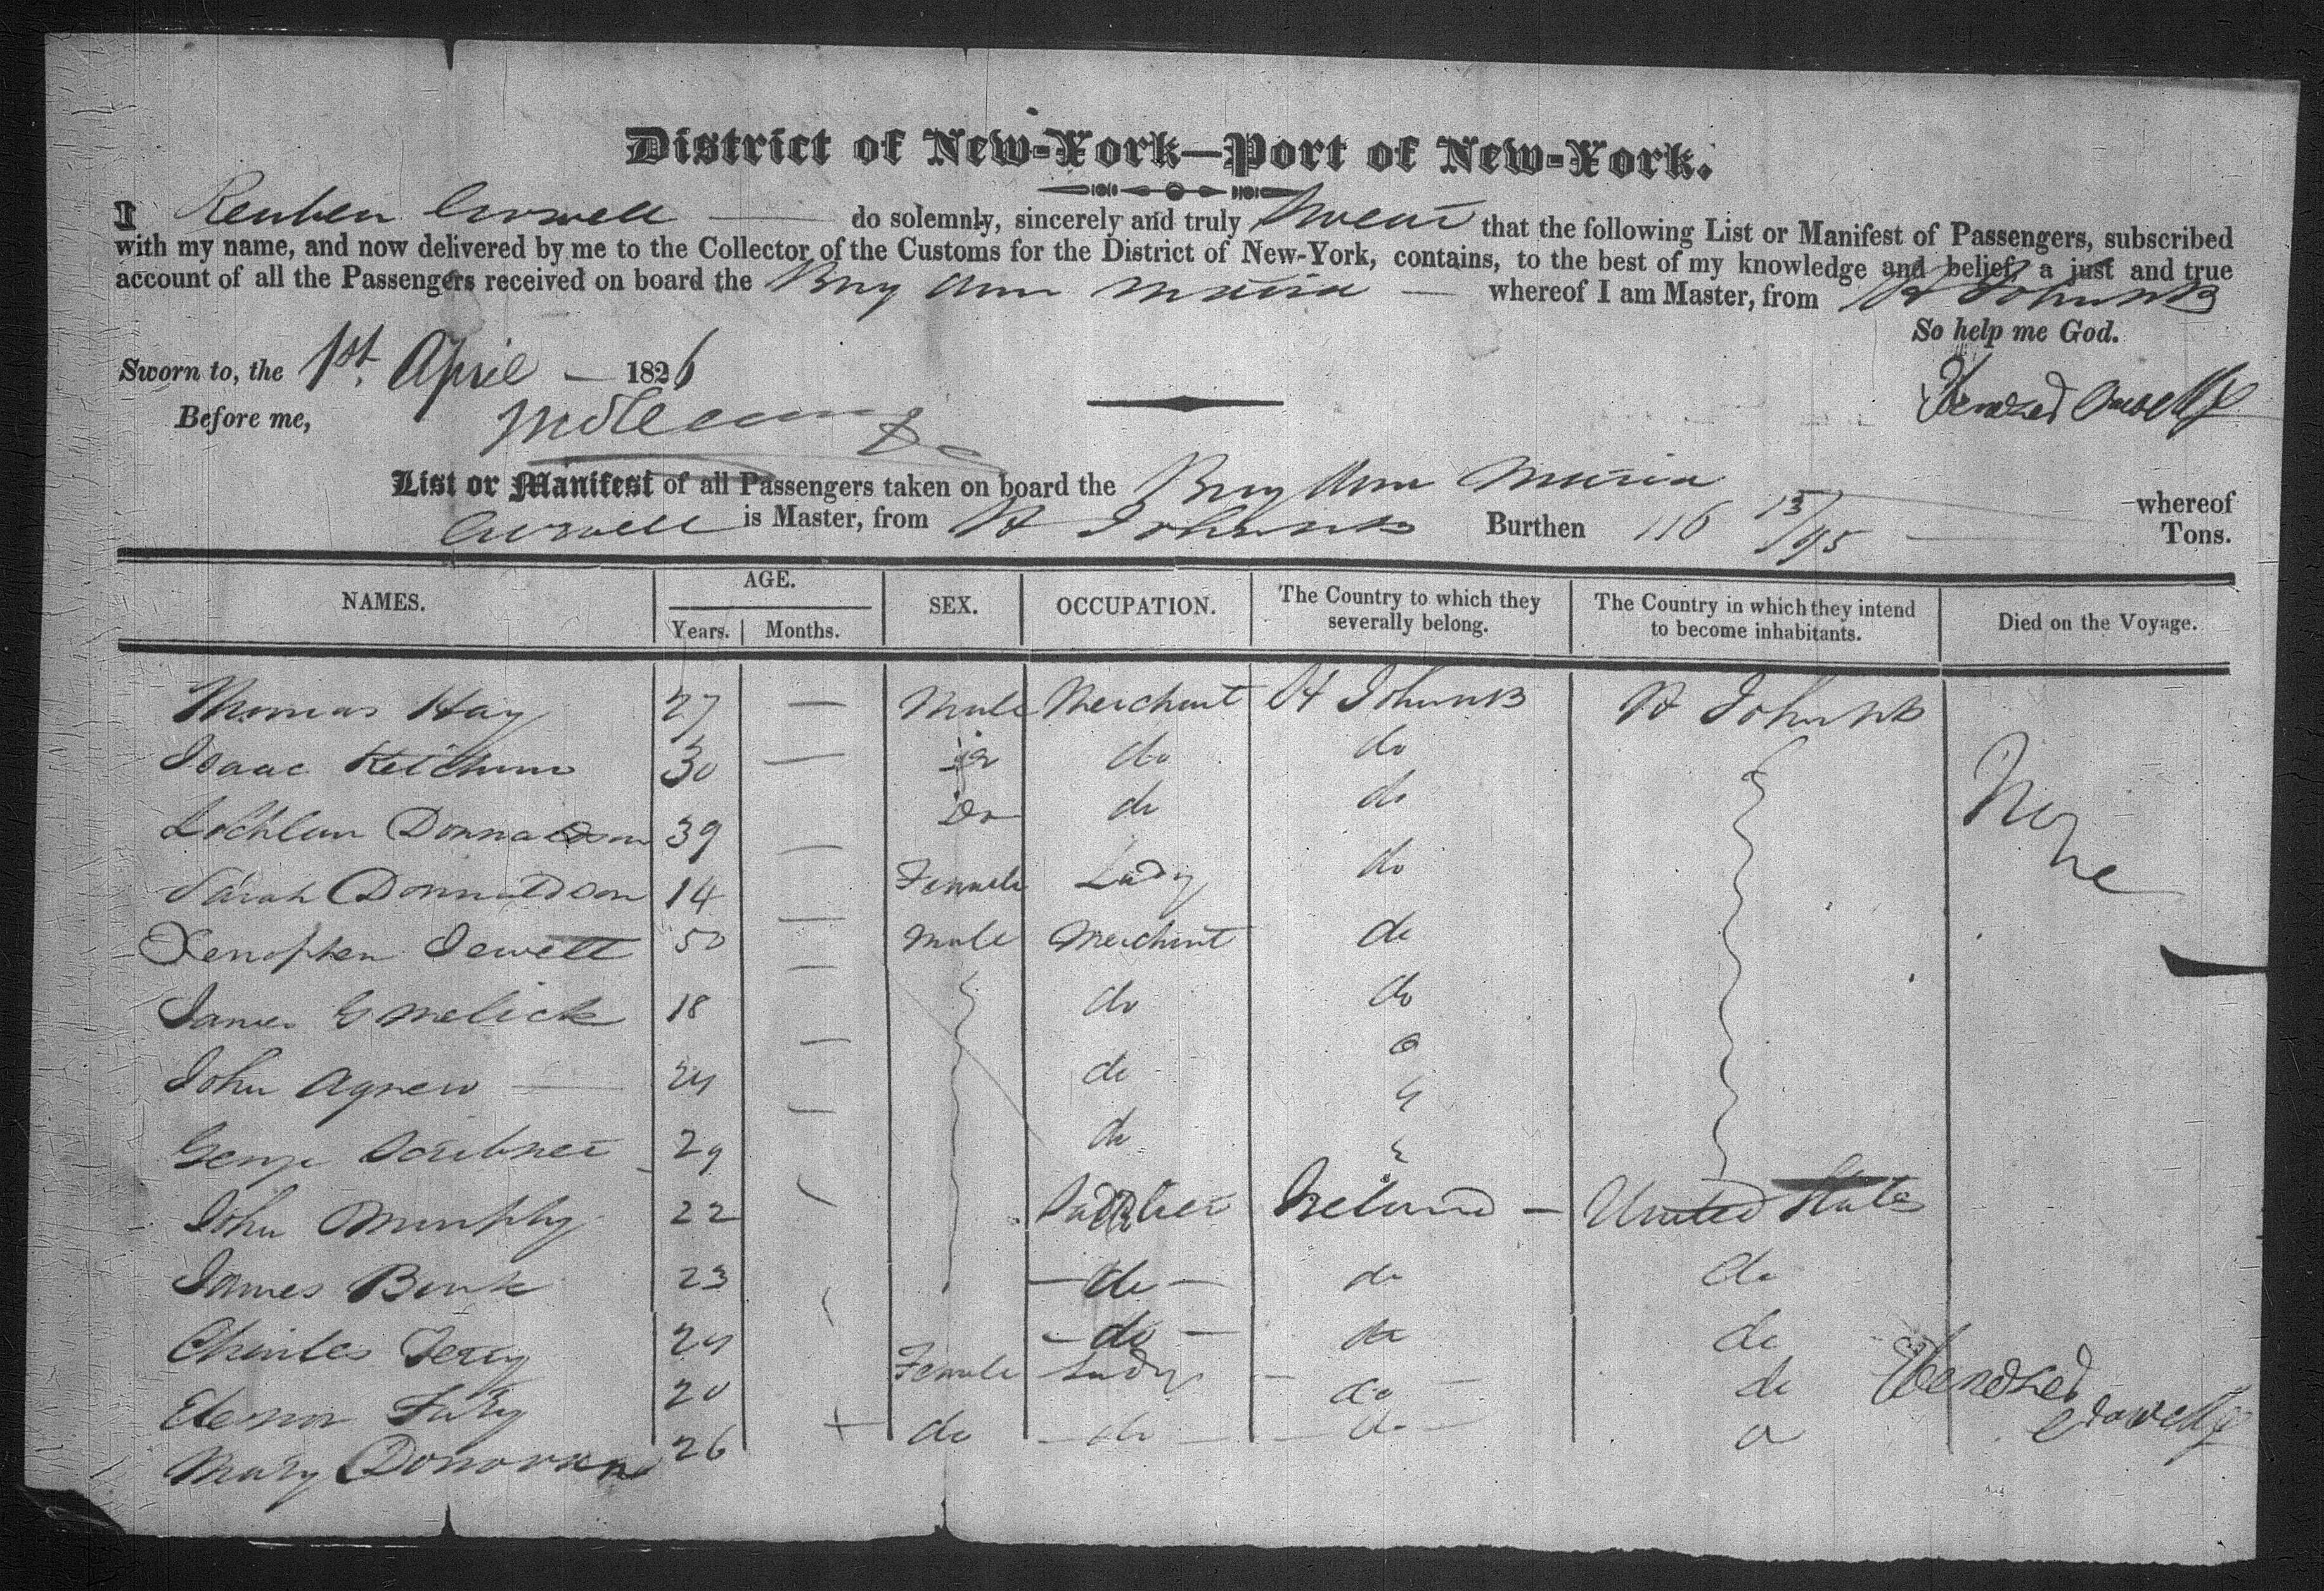 District of New-York—Port of New-York.
I Reuben Crowell — do solemnly, sincerely and truly Swear that the following List or Manifest of Passengers, subscribed
with my name, and now delivered by me to the Collector of the Customs for the District of New-York, contains, to the best of my knowledge and belief, a just and true
account of all the Passengers received on board the Brig Ann Maria — whereof I am Master, from St Johns NB
So help me God.
Sworn to, the 1st. April — 1826
Before me,
List or Manifest of all Passengers taken on board the Brig Ann Maria whereof
Crowell is Master, from St Johns NB Burthen 116 13/95 Tons.
NAMES. AGE. Years. Months. SEX. OCCUPATION. The Country to which they severally belong. The Country in which they intend to become inhabitants. Died on the Voyage.
Thomas Hay 27 — Male Merchant St Johns NB St Johns NB None
Isaac Ketchum 30 — do do do
Lochlan Donnaldson 39 — Do do do
Sarah Donnaldson 14 — Female Lady do
Xenophen Jewett 50 — Male Merchant do
James G Melick 18 — do do
John Agnew — 24 — do
George Scribner 29 do
John Murphy 22 Ireland — United States
James Burk 23 — do — do do
Charles Terry 24 — do — do do
Elenor Furey 20 Female Lady — do — do
Mary Donovan 26 do — do — — do —